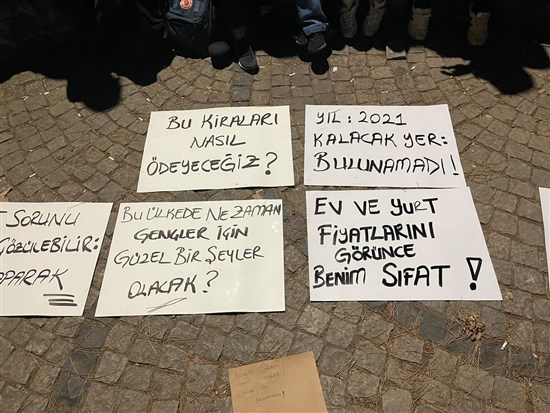 BU KİRALARI
NASIL
ÖDEYECEĞİZ?
YIL: 2021
KALACAK YER:
BULUNAMADI!
SORUNU
ÇÖZÜLEBİLİR:
APARAK
BU ÜLKEDE NE ZAMAN
GENÇLER İÇİN
GÜZEL BİR ŞEYLER
OLACAK?
EV VE YURT
FİYATLARINI
GÖRÜNCE
BENİM SIFAT!